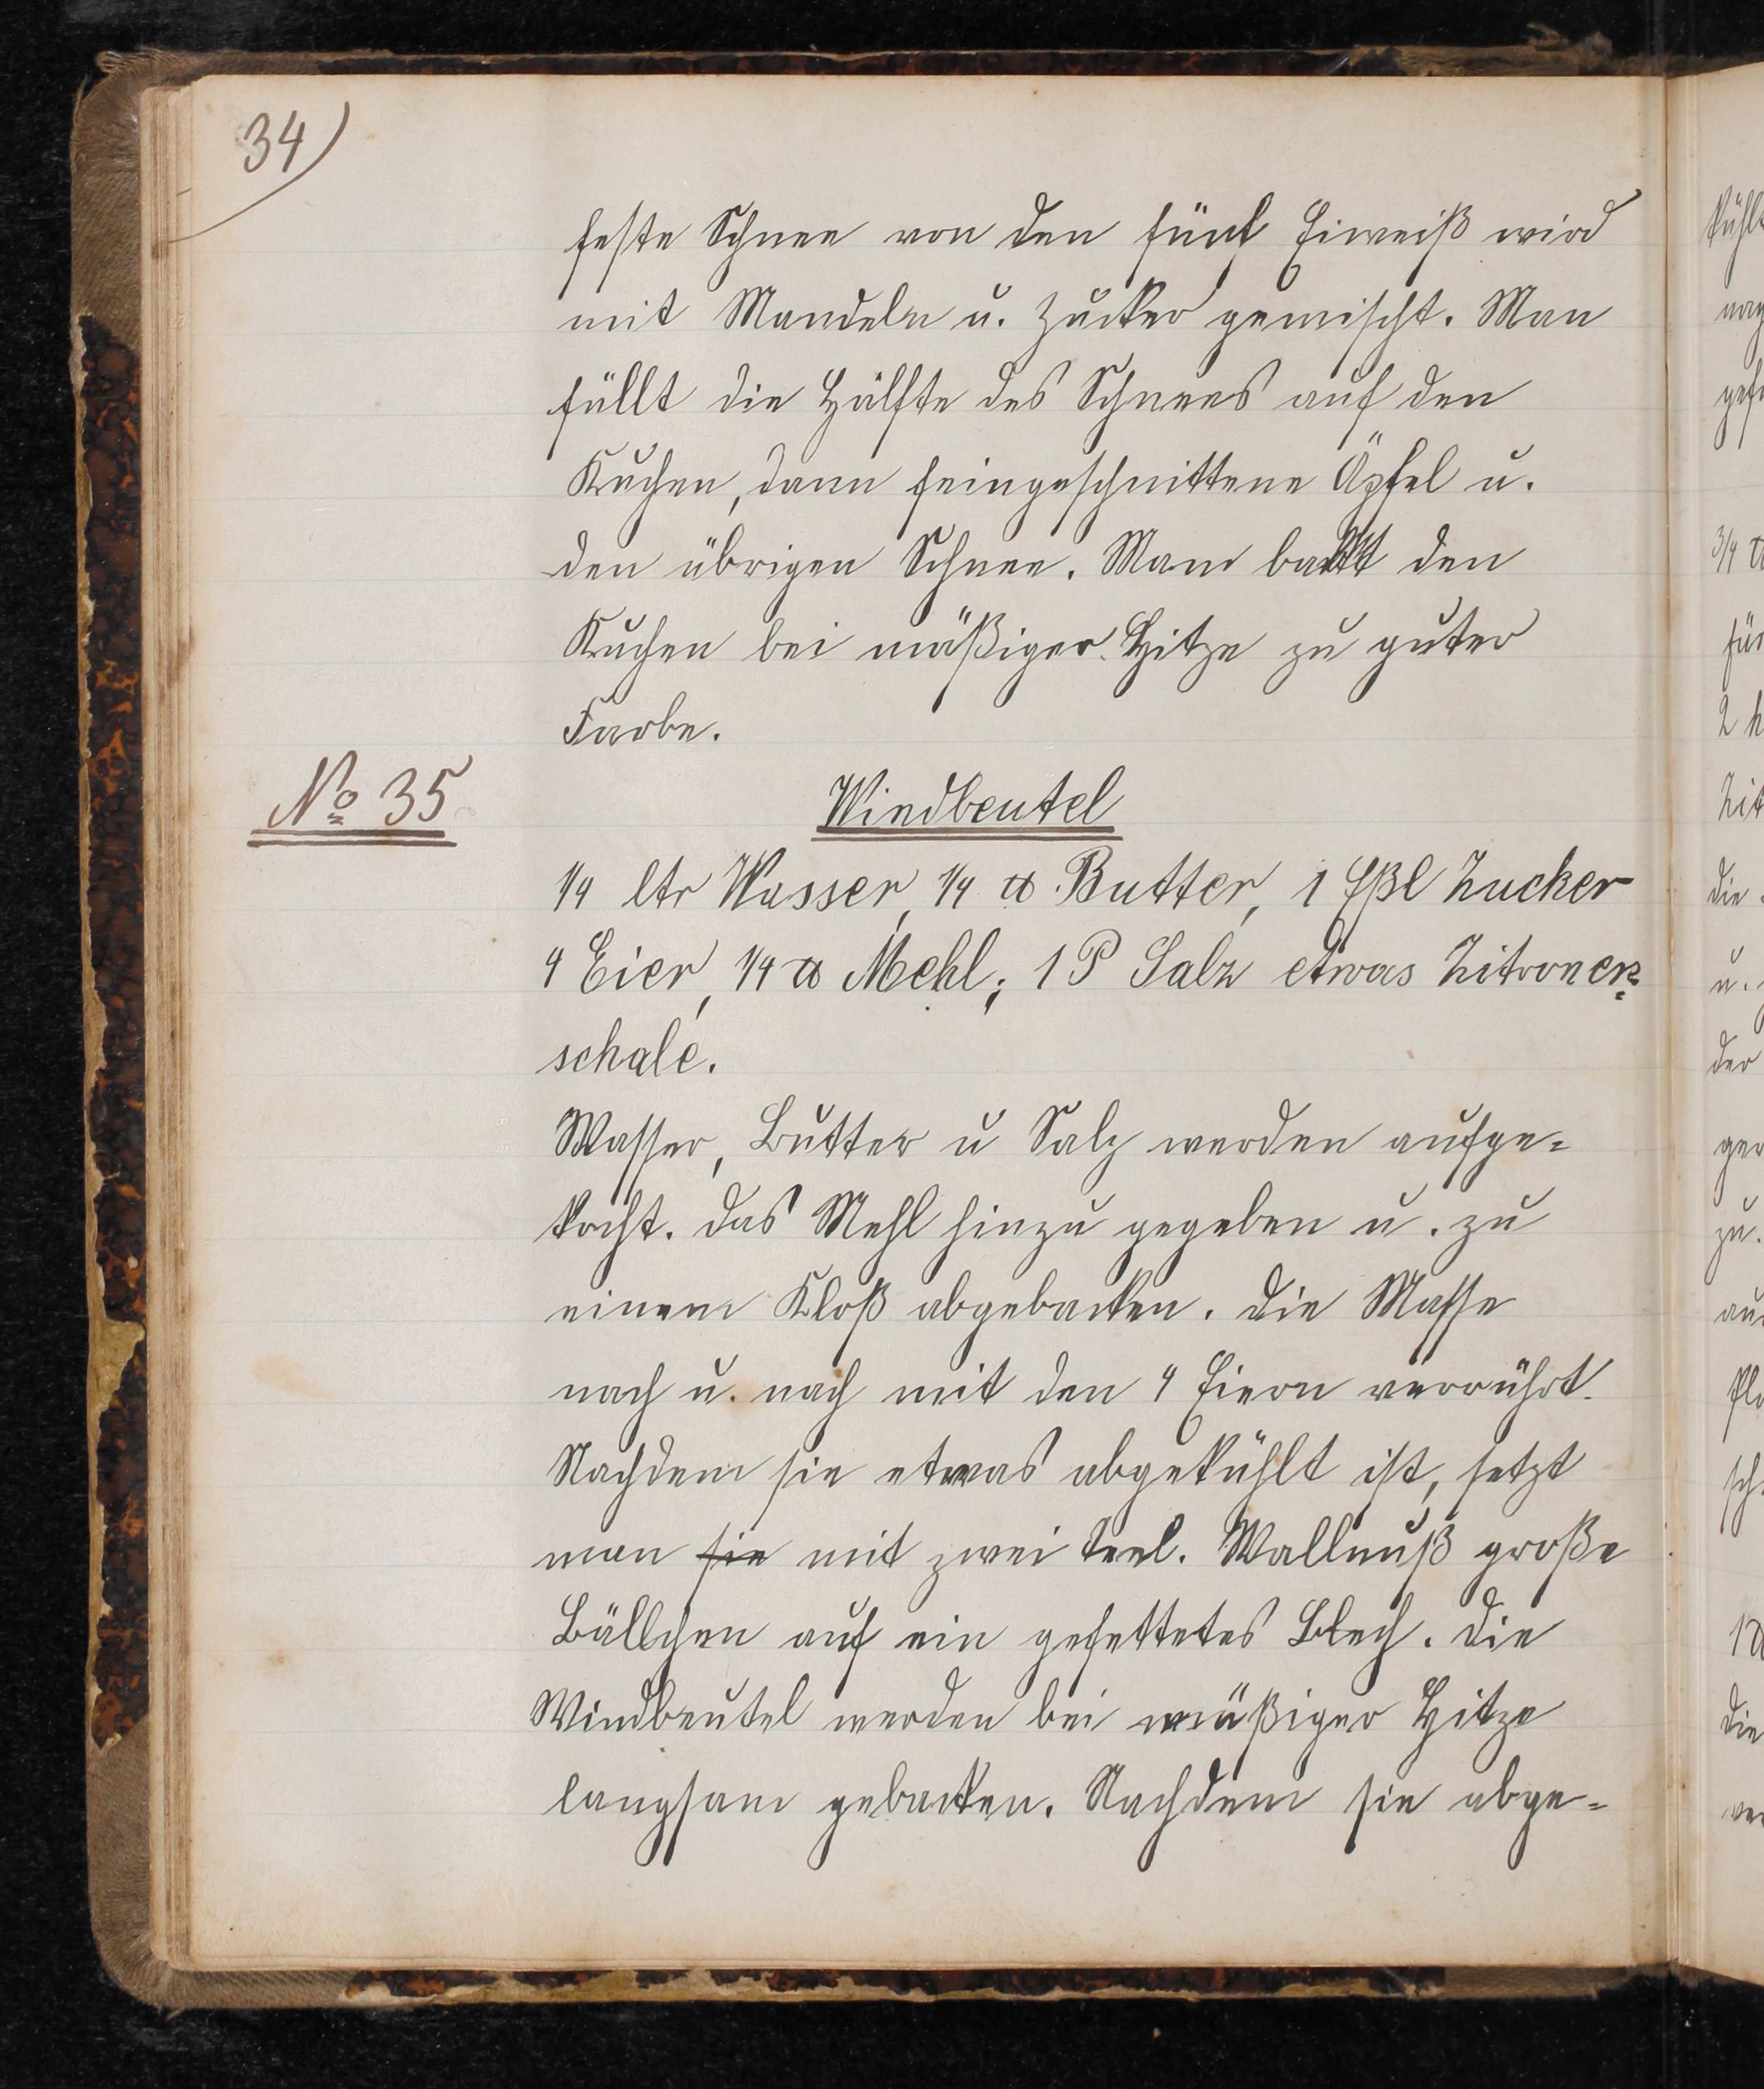 34)
feste Schnee von den fünf Eiweiß wird
mit Mandeln u. Zucker gemischt. Man
füllt die Hälfte des Schnees auf den
Kuchen, dann feingeschnittene Äpfel u.
den übrigen Schnee. Man backt den
Kuchen bei mäßiger Hitze zu guter
Farbe.
№ 35
Windbeutel
1/4 ltr Wasser, 1/4 ℔ Butter, 1 Eßl Zucker
4 Eier, 1/4 ℔ Mehl; 1 P Salz etwas Zitronen=
schale.
Wasser, Butter u Salz werden aufge=
kocht. das Mehl hinzu gegeben u. zu
einem Kloß abgebacken. die Masse
nach u. nach mit den 4 Eiern verrührt.
Nachdem sie etwas abgekühlt ist, setzt
man sie mit zwei Teel. Wallnuß große
Bällchen auf ein gefettetes Blech. die
Windbeutel werden bei mäßiger Hitze
langsam gebacken. Nachdem sie abge=